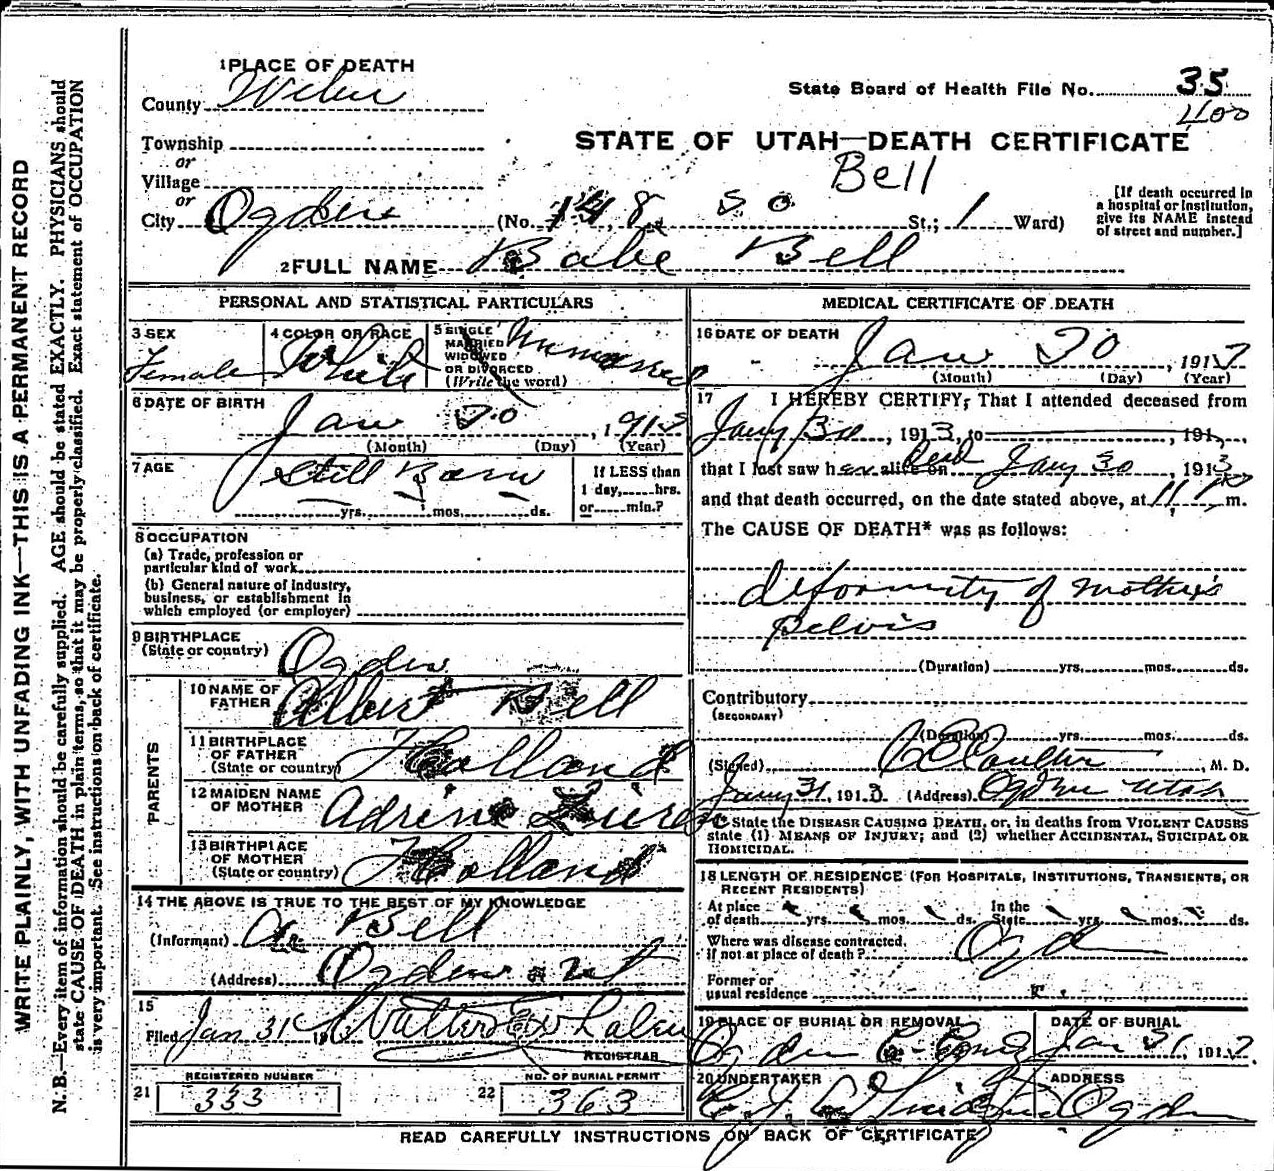 WRITE PLAINLY, WITH UNFADING INK—THIS IS A PERMANENT RECORD
N. B.—Every item of information should be carefully supplied. AGE should be stated EXACTLY. PHYSICIANS should
state CAUSE OF DEATH in plain terms, so that it may be properly classified. Exact statement of OCCUPATION
is very important. See instructions on back of certificate.
1 PLACE OF DEATH
County Weber
State Board of Health File No. 35
400
Township
or
Village
or
STATE OF UTAH—DEATH CERTIFICATE
Bell
City Ogden (No. 148 So St.; 1 Ward)
[If death occurred in
a hospital or institution,
give its NAME instead
of street and number.]
2 FULL NAME Babe Bell
PERSONAL AND STATISTICAL PARTICULARS
3 SEX
Female
4 COLOR OR RACE
White
5 SINGLE
MARRIED
WIDOWED
OR DIVORCED
(Write the word)
6 DATE OF BIRTH
Jan 30, 1913
(Month) (Day) (Year)
7 AGE
Still Born
yrs. mos. ds.
If LESS than
1 day, hrs.
or min.?
8 OCCUPATION
(a) Trade, profession or
particular kind of work
(b) General nature of industry,
business, or establishment in
which employed (or employer)
9 BIRTHPLACE
(State or country) Ogden
PARENTS
10 NAME OF
FATHER Albert Bell
11 BIRTHPLACE
OF FATHER
(State or country) Holland
12 MAIDEN NAME
OF MOTHER
13 BIRTHPLACE
OF MOTHER
(State or country) Holland
14 THE ABOVE IS TRUE TO THE BEST OF MY KNOWLEDGE
(Informant) Bell
(Address) Ogden ut
15
Filed Jan 31 13 Walter Whalen
REGISTRAR
REGISTERED NUMBER
21 333
NO. OF BURIAL PERMIT
22 363
MEDICAL CERTIFICATE OF DEATH
16 DATE OF DEATH
Jan 30, 1913
(Month) (Day) (Year)
17 I HEREBY CERTIFY, That I attended deceased from
Jany 30, 1913, to , 191
that I last saw her alive on dead Jany 30, 1913
and that death occurred, on the date stated above, at m.
The CAUSE OF DEATH* was as follows:
deformity of mother's
pelvis
(Duration) yrs. mos. ds.
Contributory
(SECONDARY)
(Duration) yrs. mos. ds.
(Signed) , M. D.
Jany 31, 1913 (Address) Ogden Utah
* State the DISEASE CAUSING DEATH, or, in deaths from VIOLENT CAUSES
state (1) MEANS OF INJURY; and (2) whether ACCIDENTAL, SUICIDAL OR
HOMICIDAL.
18 LENGTH OF RESIDENCE (FOR HOSPITALS, INSTITUTIONS, TRANSIENTS, OR
RECENT RESIDENTS)
At place
of death yrs. mos. ds. In the
State yrs. mos. ds.
Where was disease contracted,
if not at place of death? Ogden
Former or
usual residence
19 PLACE OF BURIAL OR REMOVAL
Ogden
DATE OF BURIAL
Jan 31, 1913
20 UNDERTAKER
ADDRESS
Ogden
READ CAREFULLY INSTRUCTIONS ON BACK OF CERTIFICATE